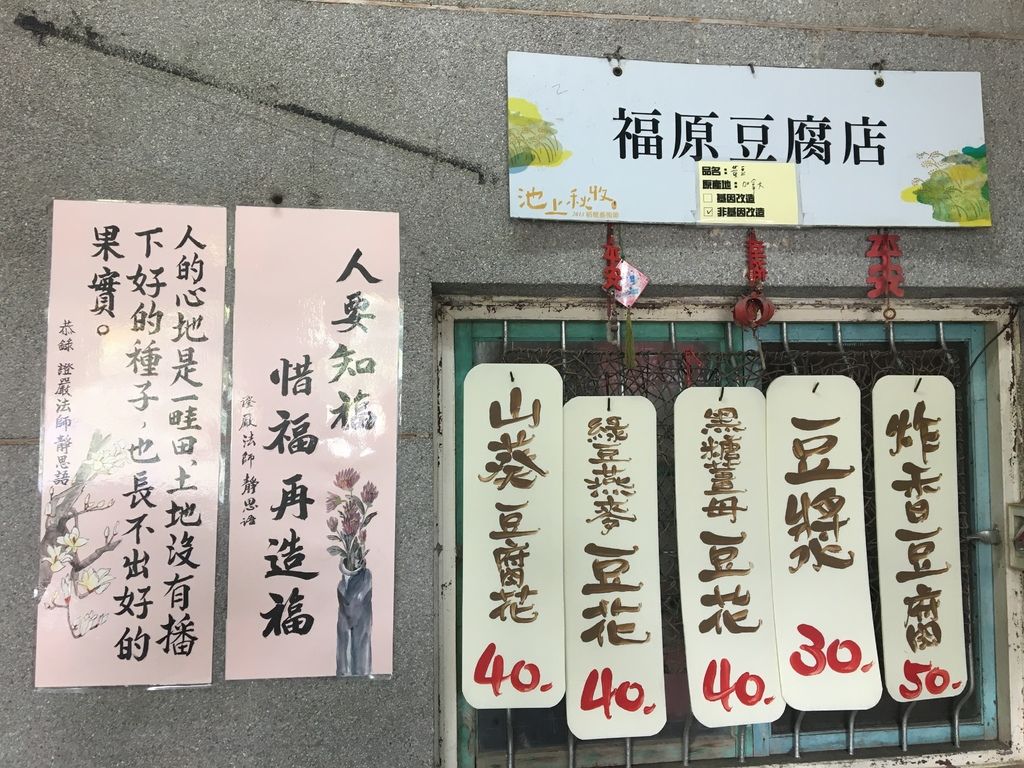 福原豆腐店
品名：黃豆
原產地：加拿大
基因改造
非基因改造
池上秋收
人的心地是一畦田，土地沒有播
下好的種子，也長不出好的
果實。
恭錄 證嚴法師靜思語
人要知福
惜福再造福
證嚴法師靜思語
山葵豆腐花
40.
綠豆燕麥豆花
40.
黑糖薑母豆花
40.
豆漿
30.
炸香豆腐
50.